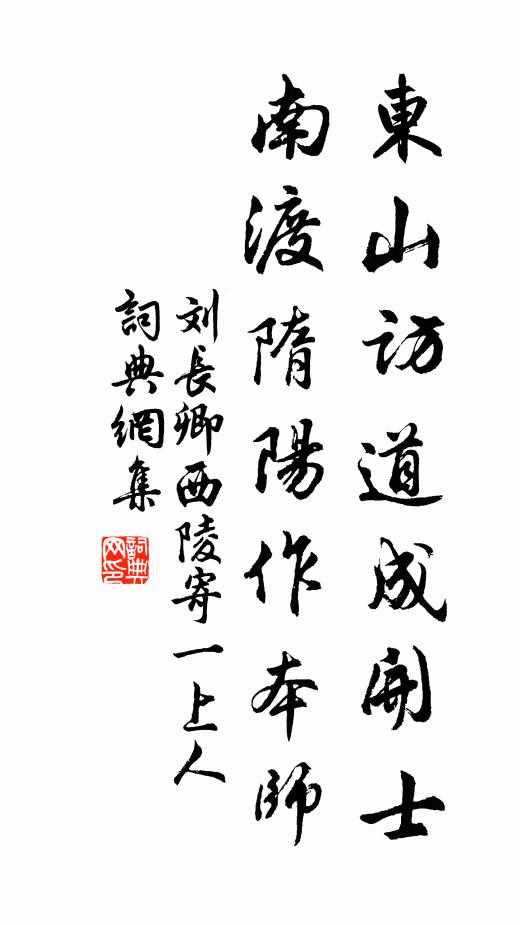 東山訪道成開士
南渡隋陽作本師
刘長卿西陵寄一上人
詞典網集
詞典网印